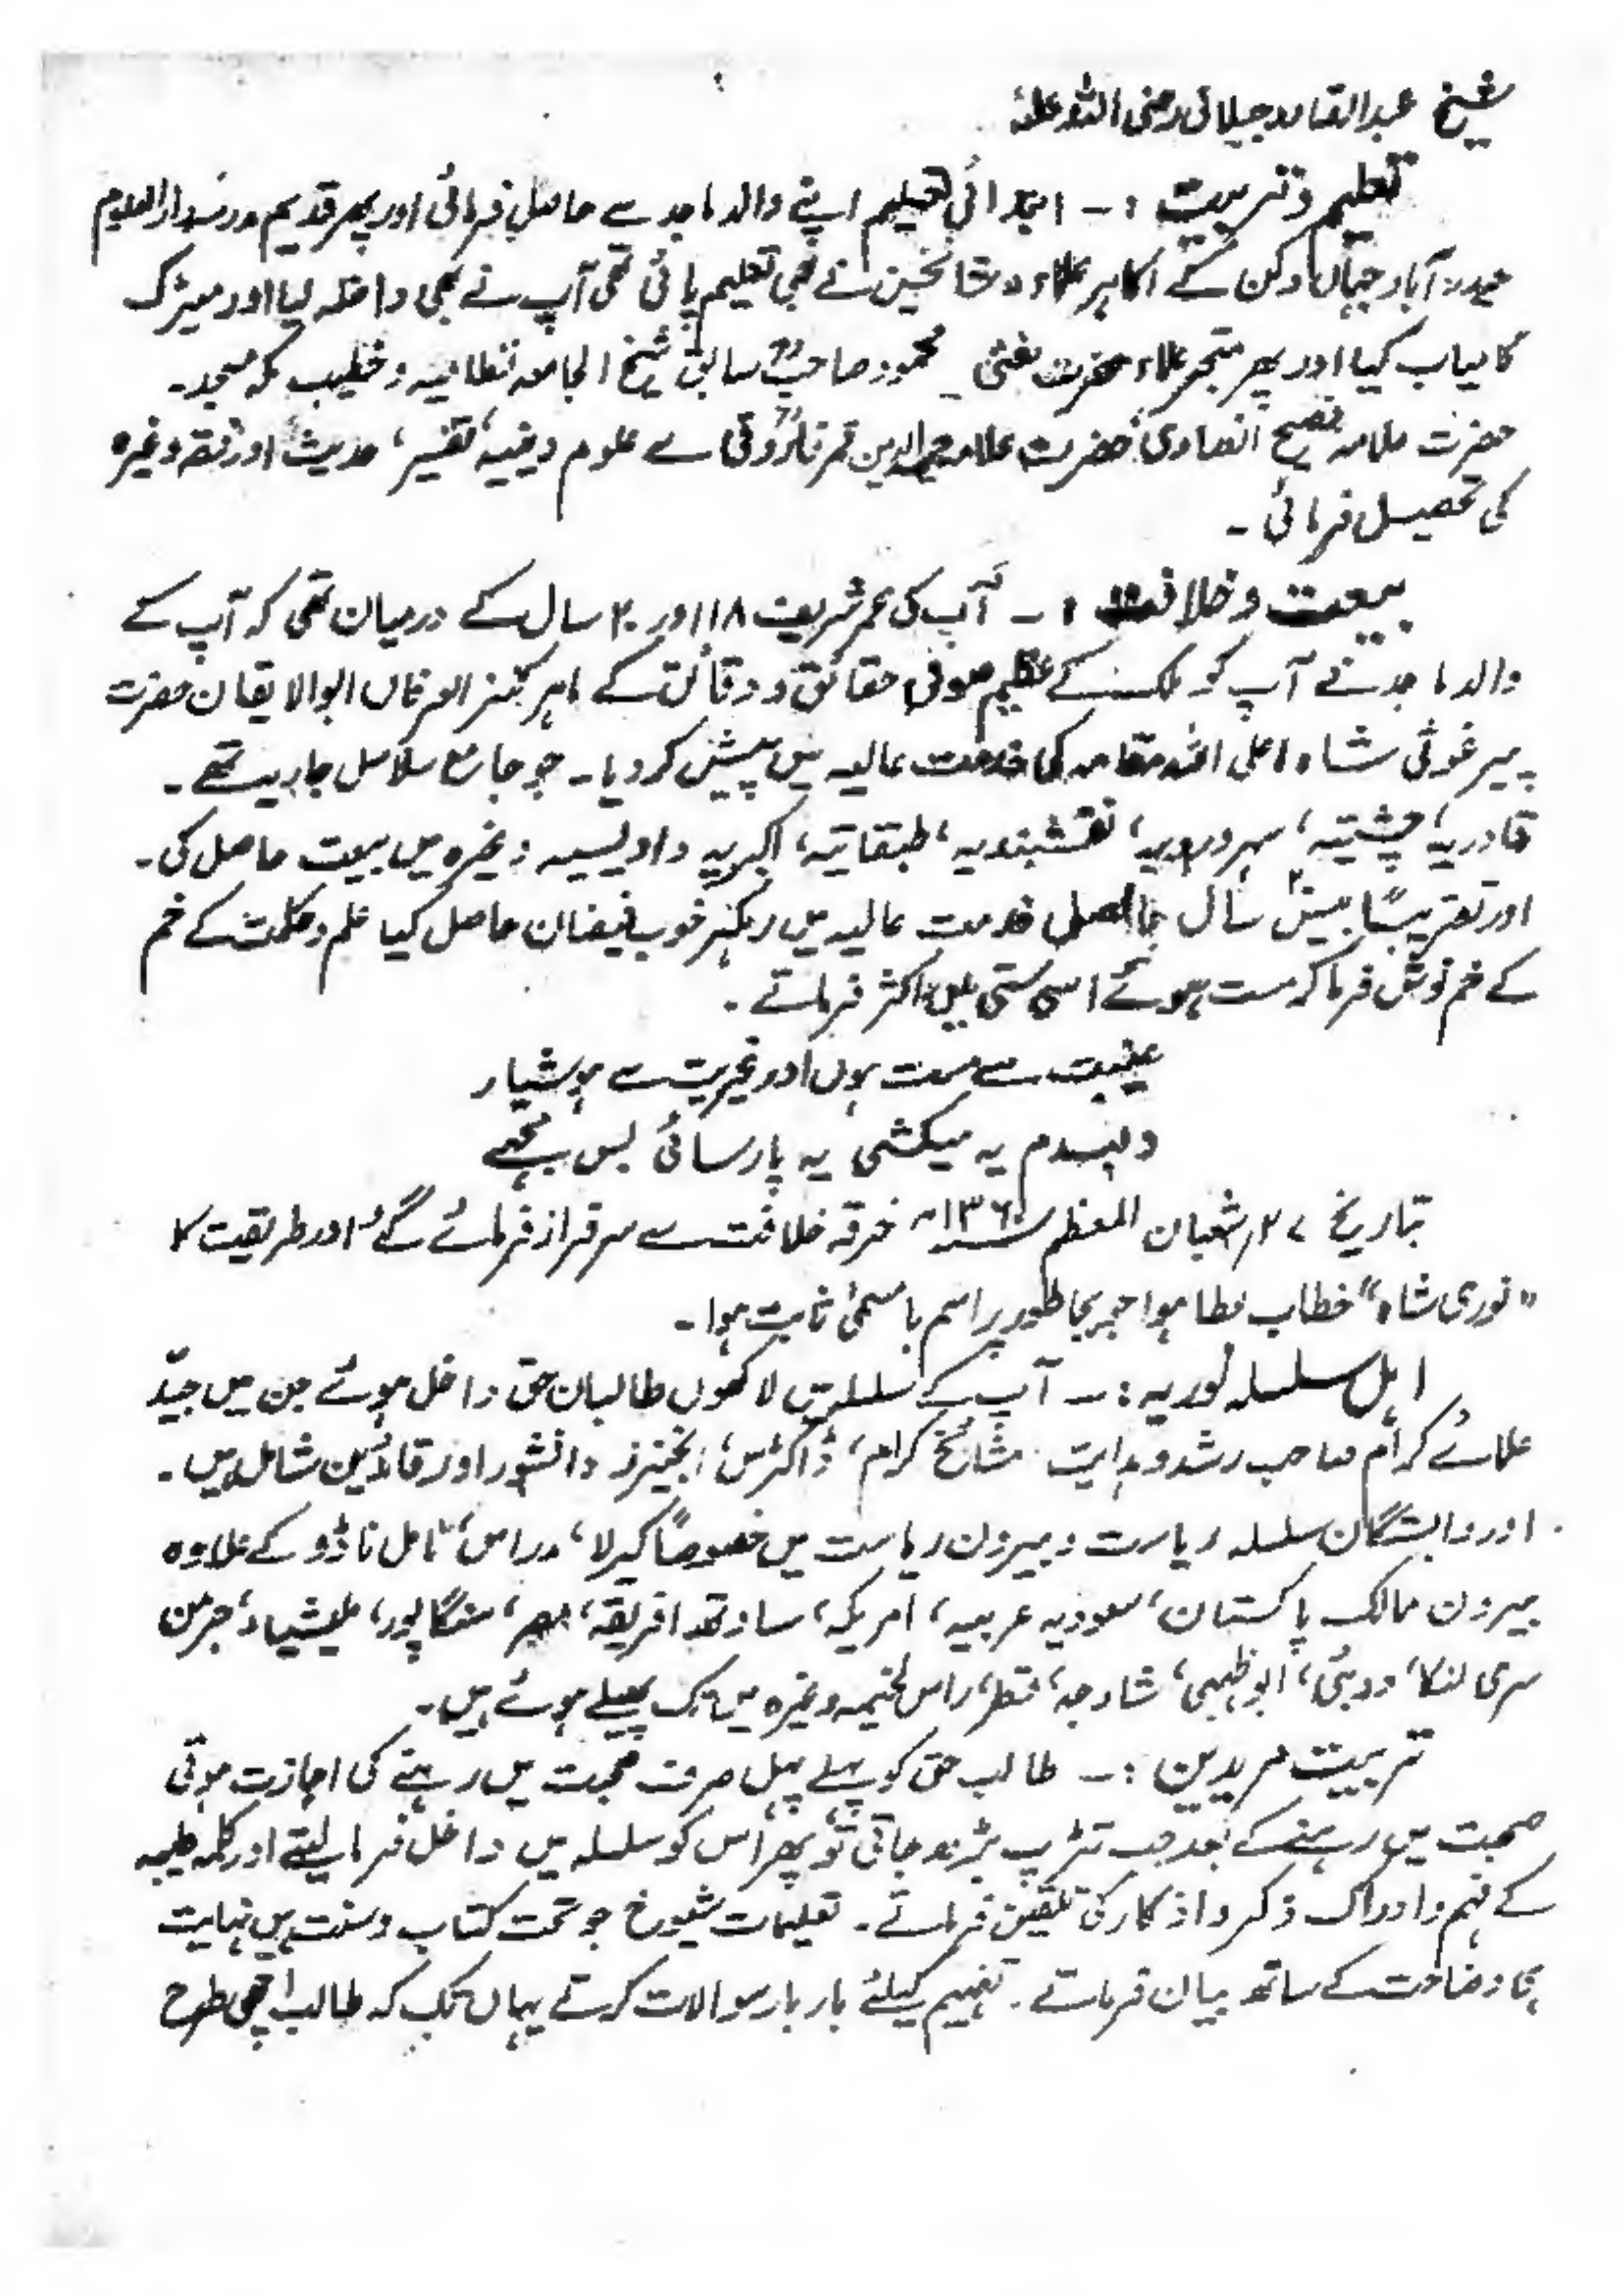 شیخ عبدالقادر جیلانی رضی اللہ عنہ
تعلیم و تربیت :۔ ابتدائی تعلیم اپنے والد ماجد سے حاصل فرمائی اور پھر قدیم مدرسہ دارالعلوم
حیدرآباد جہاں دکن کے اکابر علماء و مشائخین نے بھی تعلیم پائی تھی آپ نے بھی داخلہ لیا اور میٹرک
کامیاب کیا اور پھر متبحر علماء حضرت مفتی محمود صاحبؒ سابق شیخ الجامعہ نظامیہ و خطیب مکہ مسجد۔
حضرت علامہ فصیح انصاری، حضرت علامہ حمیدالدین قمر فاروقی سے علوم دینیہ، تفسیر، حدیث اور فقہ وغیرہ
کی تحصیل فرمائی ۔
بیعت و خلافت :۔ آپ کی عمر شریف ۱۸ اور ۲۰ سال کے درمیان تھی کہ آپ کے
والد ماجد نے آپ کو کے عظیم صوفی حقائق و دقائق کے ماہر کنز العرفان ابوالایقان حضرت
پیر غوثی شاہ اعلی اللہ مقامہ کی خدمت عالیہ میں پیش کر دیا۔ جو جامع سلاسل جاریہ تھے ۔
قادریہ، چشتیہ، سہروردیہ، نقشبندیہ، طبقاتیہ، اکبریہ و اویسیہ وغیرہ میں بیعت حاصل کی۔
اور تقریباً بیس سال خدمت عالیہ میں رہ کر خوب فیضان حاصل کیا علم و حکمت کے خم
کے خم نوش فرما کر مست ہوئے اسی مستی میں اکثر فرماتے ۔
عینیت سے مست ہوں اور غیریت سے ہوشیار
دمبدم یہ میکشی یہ پارسائی بس مجھے
بتاریخ ۲۷ شعبان المعظم ۱۳۶۰ھ خرقہ خلافت سے سرفراز فرمائے گئے اور طریقیت کا
"نوری شاہ" خطاب عطا ہوا جو بجا طور پر اسم با مسمیٰ ثابت ہوا ۔
اہل سلسلہ نوریہ :۔ آپ کے سلسلہ میں لاکھوں طالبان حق داخل ہوئے جن میں جیّد
علمائے کرام صاحب رشد و ہدایت مشائخ کرام، ڈاکٹرس، انجینرز دانشور اور قائدین شامل ہیں ۔
اور وابستگان سلسلہ ریاست و بیرون ریاست میں خصوصاً کیرلا، مدراس، ٹامل ناڈو کے علاوہ
بیرون ممالک پاکستان، سعودیہ عربیہ، امریکہ، ساوتھ افریقہ، مصر، سنگاپور، ملیشیاء، جرمن
سری لنکا، دوبئی، ابوظہبی، شارجہ، قطر، راس الخیمہ وغیرہ میں تک پھیلے ہوئے ہیں ۔
تربیت مریدین :۔ طالب حق کو پہلے پہل صرف صحبت میں رہنے کی اجازت ہوتی
صحبت میں رہنے کے بعد جب تڑپ بڑھ جاتی تو پھر اس کو سلسلہ میں داخل فرما لیتے اور کلمہ طیبہ
کے فہم و ادراک ذکر و اذکار کی تلقین فرماتے ۔ تعلیمات شیوخ جو تحت کتاب و سنت ہیں نہایت
ہی وضاحت کے ساتھ بیان فرماتے ۔ تفہیم کیلئے بار بار سوالات کرتے یہاں تک کہ طالب اچھی طرح